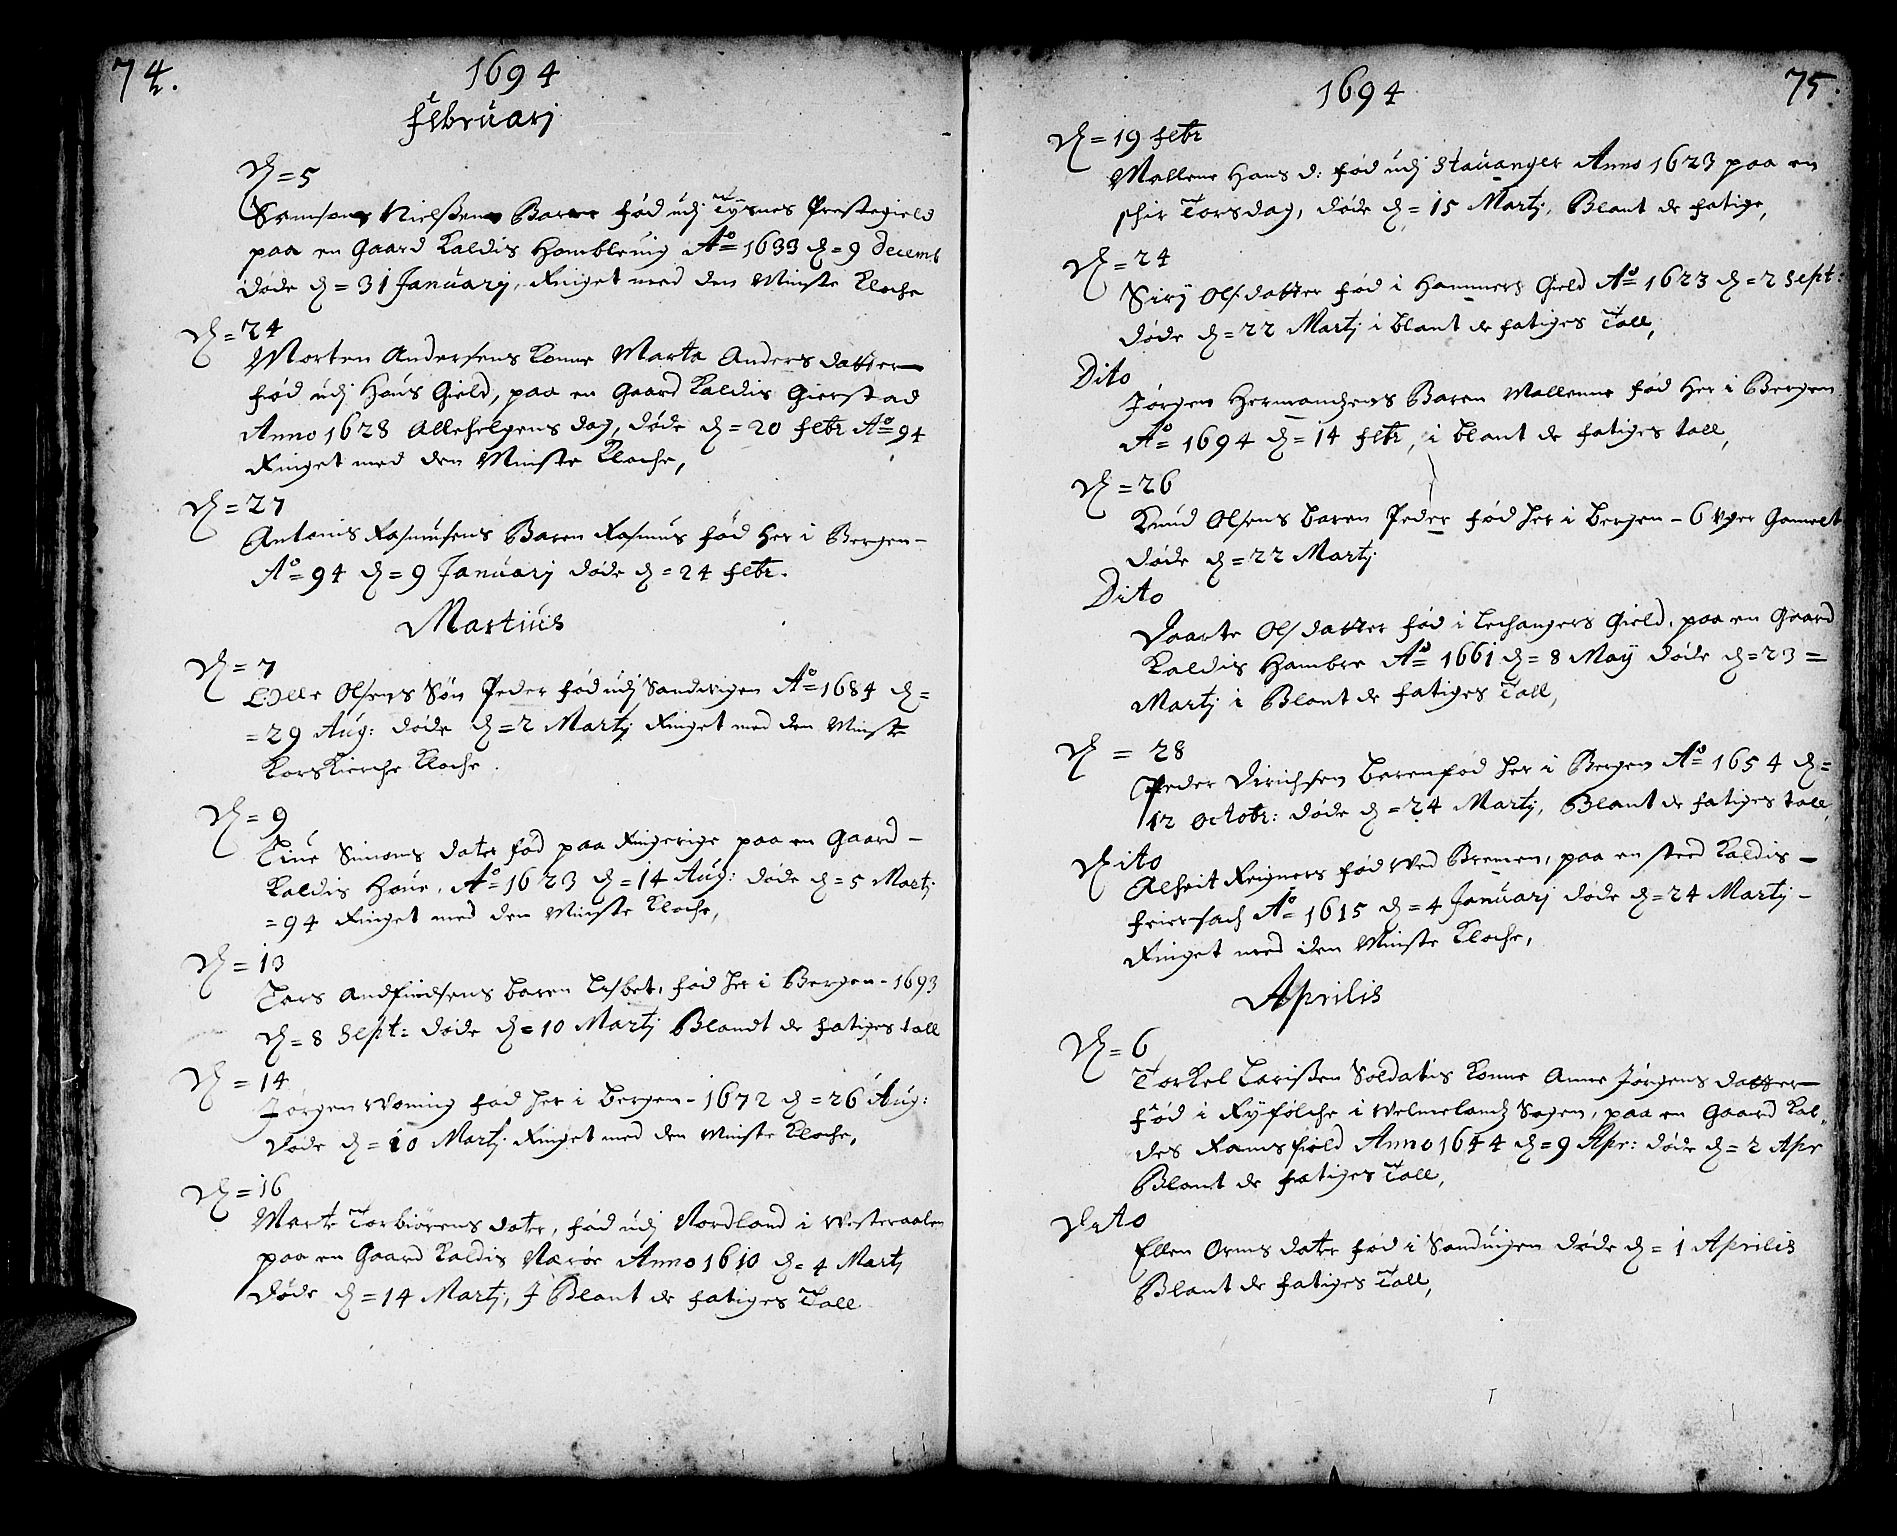 74.
1694
Februarj
D = 5
Samsons Nielßens Baren fød udj Tysnes Prestegield
paa en Gaard Kaldis Hambleuig Ao 1633 d = 9 Decemb
Døde d = 31 Januarij, Ringet med den Minste Kloche
D = 24
Morten Andersens Konne Marta Anders datter
fød udj Hous Gield, paa en Gaard Kaldis Gierstad
Anno 1628 Allehelgens dag, døde d = 20 febr Ao 94
Ringet med den Minste Kloche,
D = 27
Antonis Rasmusens Baren Rasmus fød Her i Bergen –
Ao = 94 d = 9 Januarj døde d = 24 febr.
Martius
D = 7
Olle Olsens Søn Peder fød udj Sandvigen Ao = 1684 d =
= 29 Aug: døde d = 2 Martj Ringet med den Minste
Korskierche Kloche.
D = 9
Tiue Simons dater fød paa Ringerige paa en Gaard –
Kaldis Houe, Ao = 1623 d = 14 Aug: døde d = 5 Martj
= 94 Ringet med den Minste Kloche,
D = 13
Lars Andfindsens baren Lisbet, fød her i Bergen – 1693
d = 8 Sept: døde d = 10 Martj Blandt de fatiges tall
D = 14
Jørgen Woning fød her i bergen – 1672 d = 26 Aug:
Døde d = 10 Martj Ringet med den Minste Kloche,
D = 16
Marte Torbiörens dater, fød udj Nordland i Westeraalen
paa en Gaard Kaldis Nærøe Anno 1610 d = 4 Martj
Døde d = 14 Martj, J Blant de fatiges Tall
1694
75.
D = 19 febr
Mallene Hans d: fød udj Stauanger Anno 1623 paa en
schir Torsdag, døde d = 15 Martj, Blant de fatige,
D = 24
Sirj Olsdatter fød i Hammers Gield Ao 1623 d = 2 Sept:
døde d = 22 Martj i blant de fatiges Tall,
Dito
Jørgen Hermandzens Baren Mallenne fød Her i Bergen
Ao = 1694 d = 14 febr, i blant de fatiges tall,
D = 26
Knud Olsens baren Peder fød her i bergen – 6 vger Gamelt
døde d = 22 Martj
Dito
Daarte Olsdatter fød i Lechangers Gield, paa en Gaard
Kaldis Hambre Ao = 1661 d = 8 Maij døde d = 23 =
Martj i Blant de fatiges Tall,
D = 28
Peder Dirichsen baren fød her i Bergen Ao = 1654 d =
12 Octobr: døde d = 24 Martj, Blant de fatiges tall,
Dito
Alheit Reigners fød wed Bremen, paa en sted Kaldis –
Ao = 1615 d = 4 Januarj døde d = 24 Martj –
Ringet med den Minste Kloche,
Aprilis
D = 6
Torkel Larißen Soldatis Konne Anne Jørgens datter
fød i Ryfølche i Welmelandz Sogen, paa en Gaard Kal-
des Ramsfield Anno 1644 d = 9 Apr: døde d = 2 Apr
Blant de fatiges Tall,
Dito
Ellen Orms dater fød i Sanduigen døde d = 1 Aprilis
Blant de fatiges Tall,